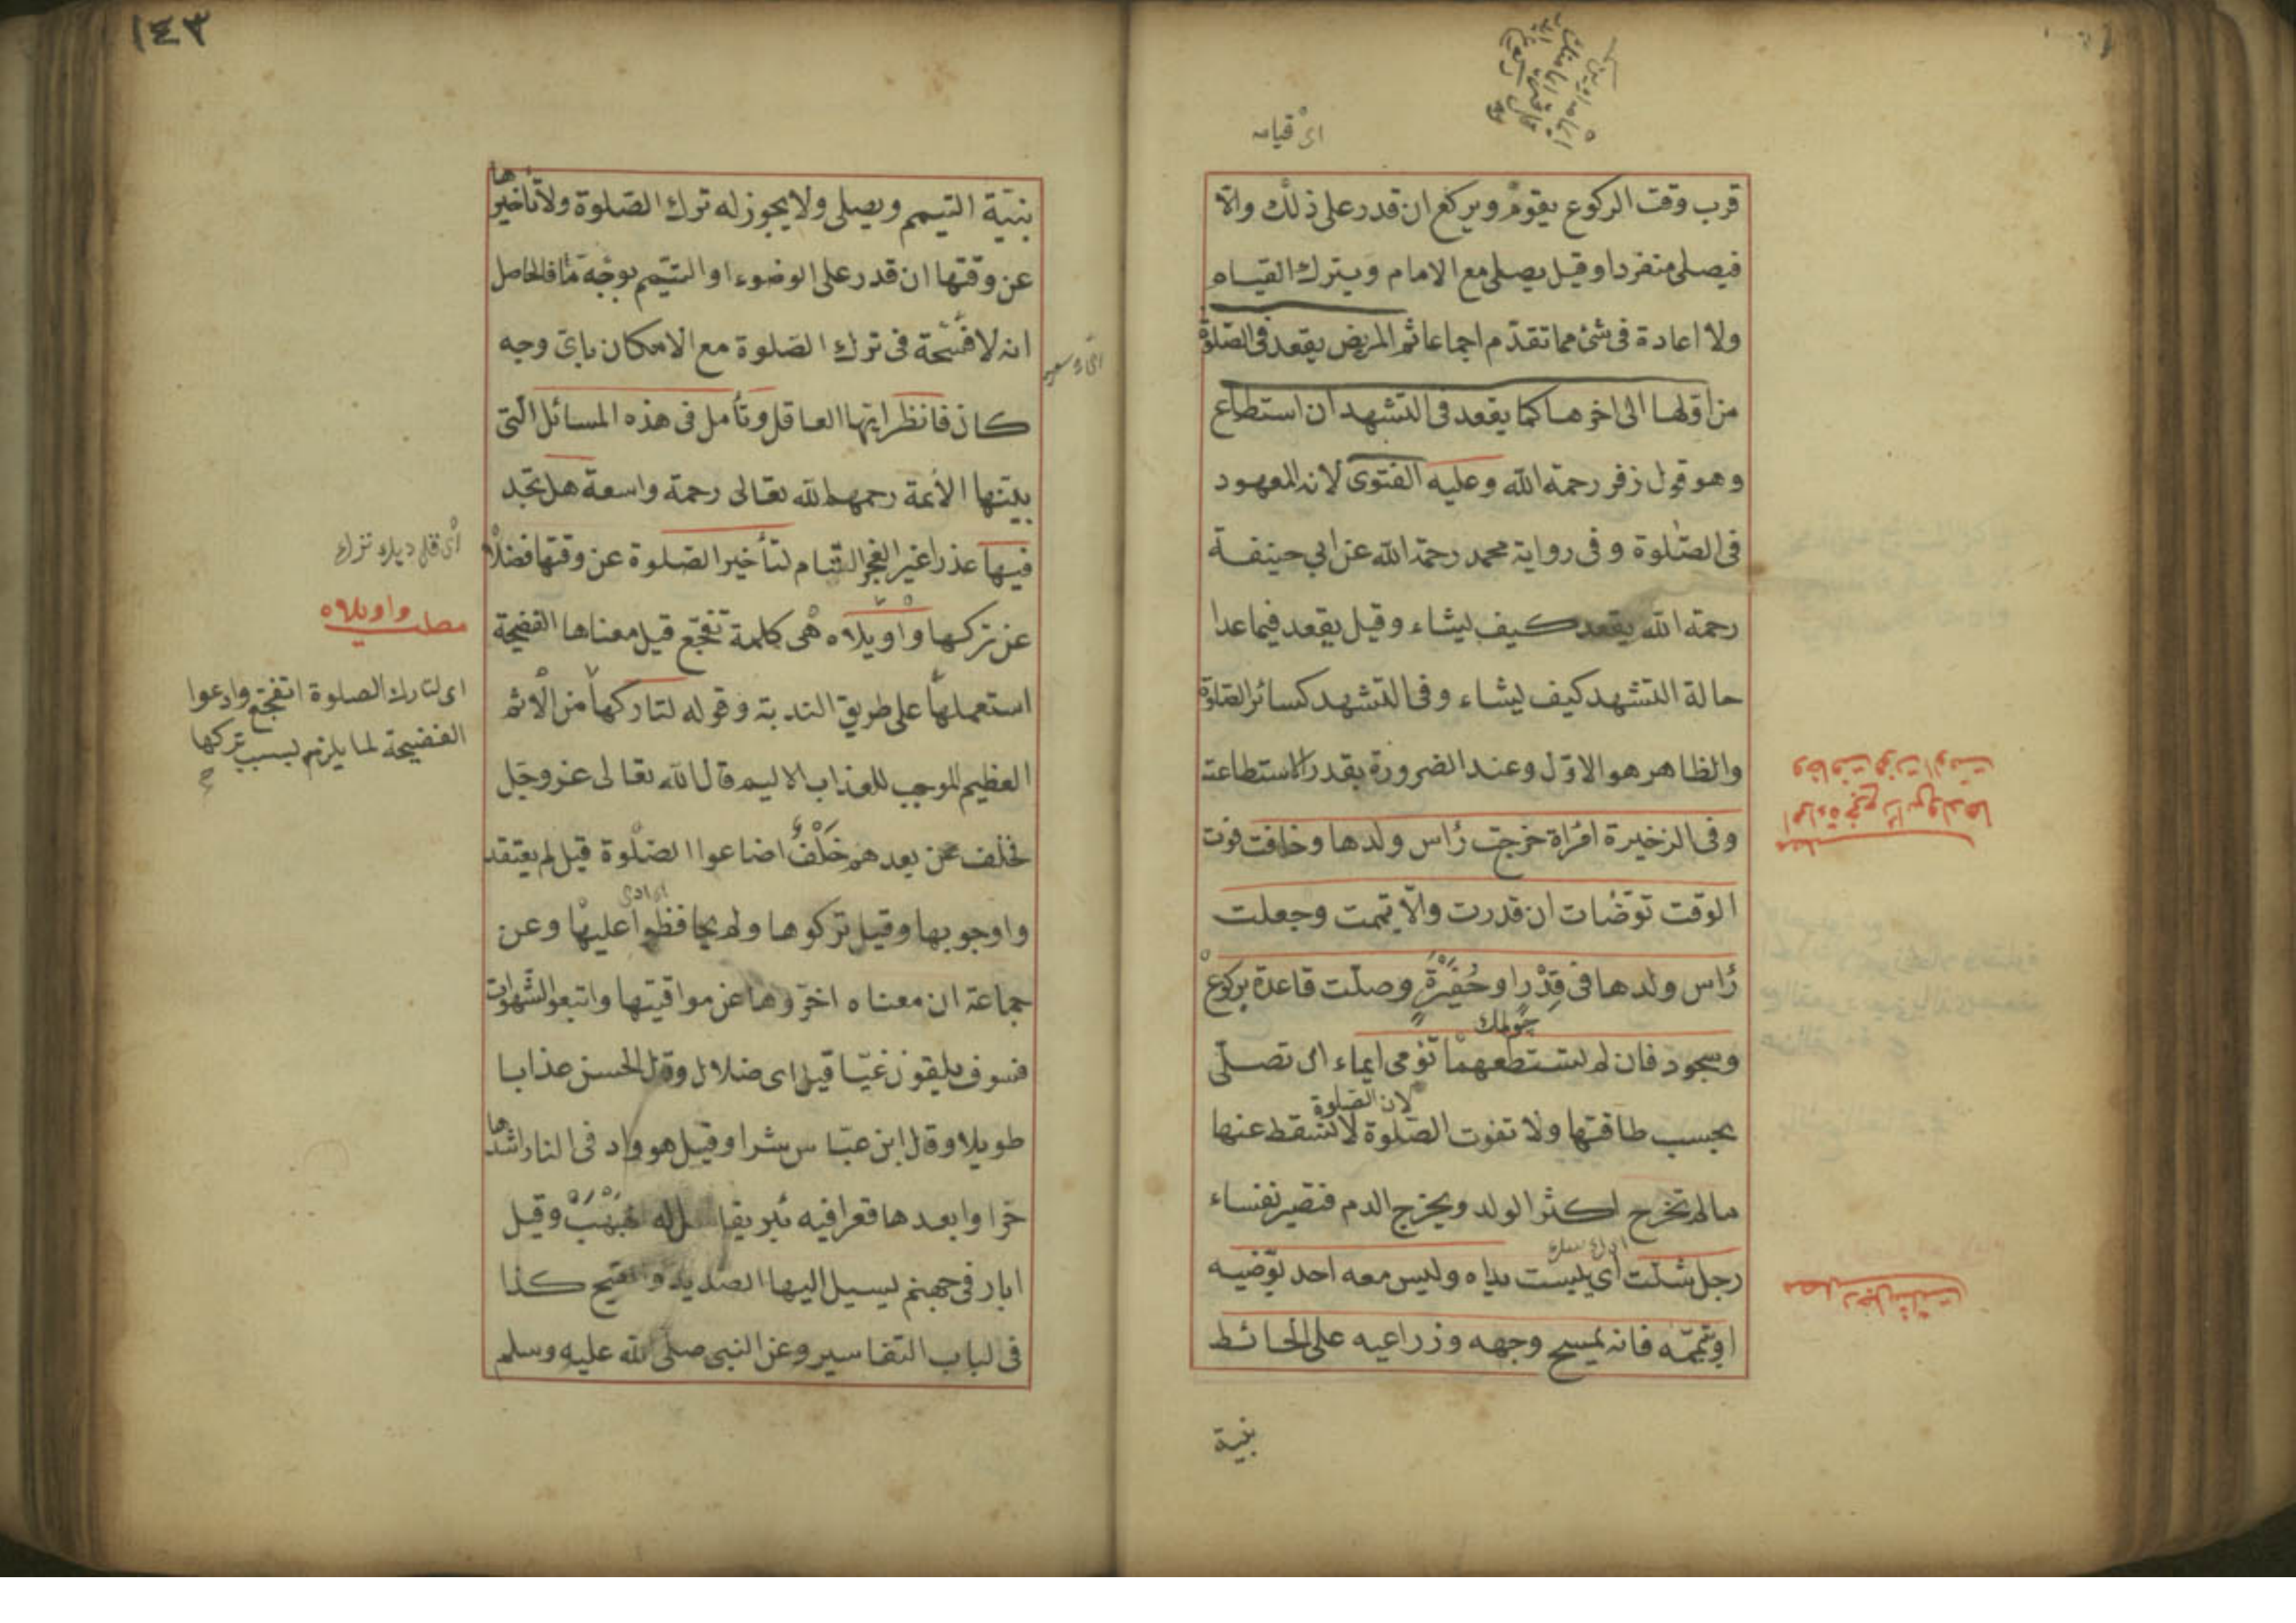 اى قيامه
قرب وقت الركوع يقوم ويركع ان قدر على ذلك والا
فيصلى منفردا وقيل يصلى مع الامام ويترك القيام
ولا اعادة فى شئ مما تقدّم اجماعا ثم المريض يقعد فى الصلوة
من اولها الى اخرها كما يقعد فى التشهد ان استطاع
وهو قول زفر رحمة الله وعليه الفتوى لانه المعهود
فى الصلوة وفى رواية محمد رحمة الله عن ابي حنيفة
رحمة الله يقعد كيف يشاء وقيل يقعد فيما عدا
حالة التشهد كيف يشاء وفى التشهد كسائر الصلوة
والظاهر هو الاوّل وعند الضرورة بقدر الاستطاعة
وفى الزخيرة امرأة خرجت رأس ولدها وخافت فوت
الوقت توضأت ان قدرت والّا تيممت وجعلت
رأس ولدها فى قِدْرٍ او حُفَيْرَةٍ وصلّت قاعدة بركوع
چولمك
وسجود فان لم تستطعهما تؤمى ايماء اى تصلّى
لان الصلوة
بحسب طاقتها ولا تفوت الصلوة لا تسقط عنها
مالم تخرج اكثر الولد ويخرج الدم فتصير نفساء
رجل شلّت اى يبست يداه وليس معه احد يوّضيه
او يتيممّه فانه يمسح وجهه وذراعيه على الحائط
بنية
مطلب امراة خرج رأس ولدها
وخافت فوت الوقت
مطلب رجل شلت
١٤٣
بنيّة التيمم ويصلى ولا يجوز له ترك الصلوة ولا تأخيرها
عن وقتها ان قدر على الوضوء او التيمّم بوجه ما فالحاصل
انه لا فسحة فى ترك الصلوة مع الامكان باىّ وجه
كان فانظر ايتها العاقل وتأمل فى هذه المسائل الّتى
بيّنها الأئمة رحمهم الله تعالى رحمة واسعة هل تجد
فيها عذرا غير العجز التام لتأخير الصلوة عن وقتها فضلا
عن تركها واويلاه هى كلمة تفجّع قيل معناها الفضيحة
استعملها على طريق الندبة وقوله لتاركها من الاثم
العظيم الموجب للعذاب الاليم قال الله تعالى عز وجل
فخلف من بعدهم خَلْفٌ اضاعوا الصلوة قيل لم يعتقد
واوجوبها وقيل تركوها ولم يحافظوا عليها وعن
جماعة ان معناه اخّروها عن مواقيتها واتبعوا الشهوات
فسوف يلقون غيّا قيل اى ضلال وقال الحسن عذابا
طويلا وقال ابن عبّاس شرا وقيل هو واد فى النار اشدّها
حرّا وابعدها قعرا فيه بئر يقال له هَبْهَبْ وقيل
ابار فى جهنم يسيل اليها الصديد والقيح كذا
فى لباب التفاسير وعن النبى صلى الله عليه وسلم
مطلب واويلاه
اى لتارك الصلوة اتفجّع وادعوا
الفضيحة لما يلزم بسبب تركها